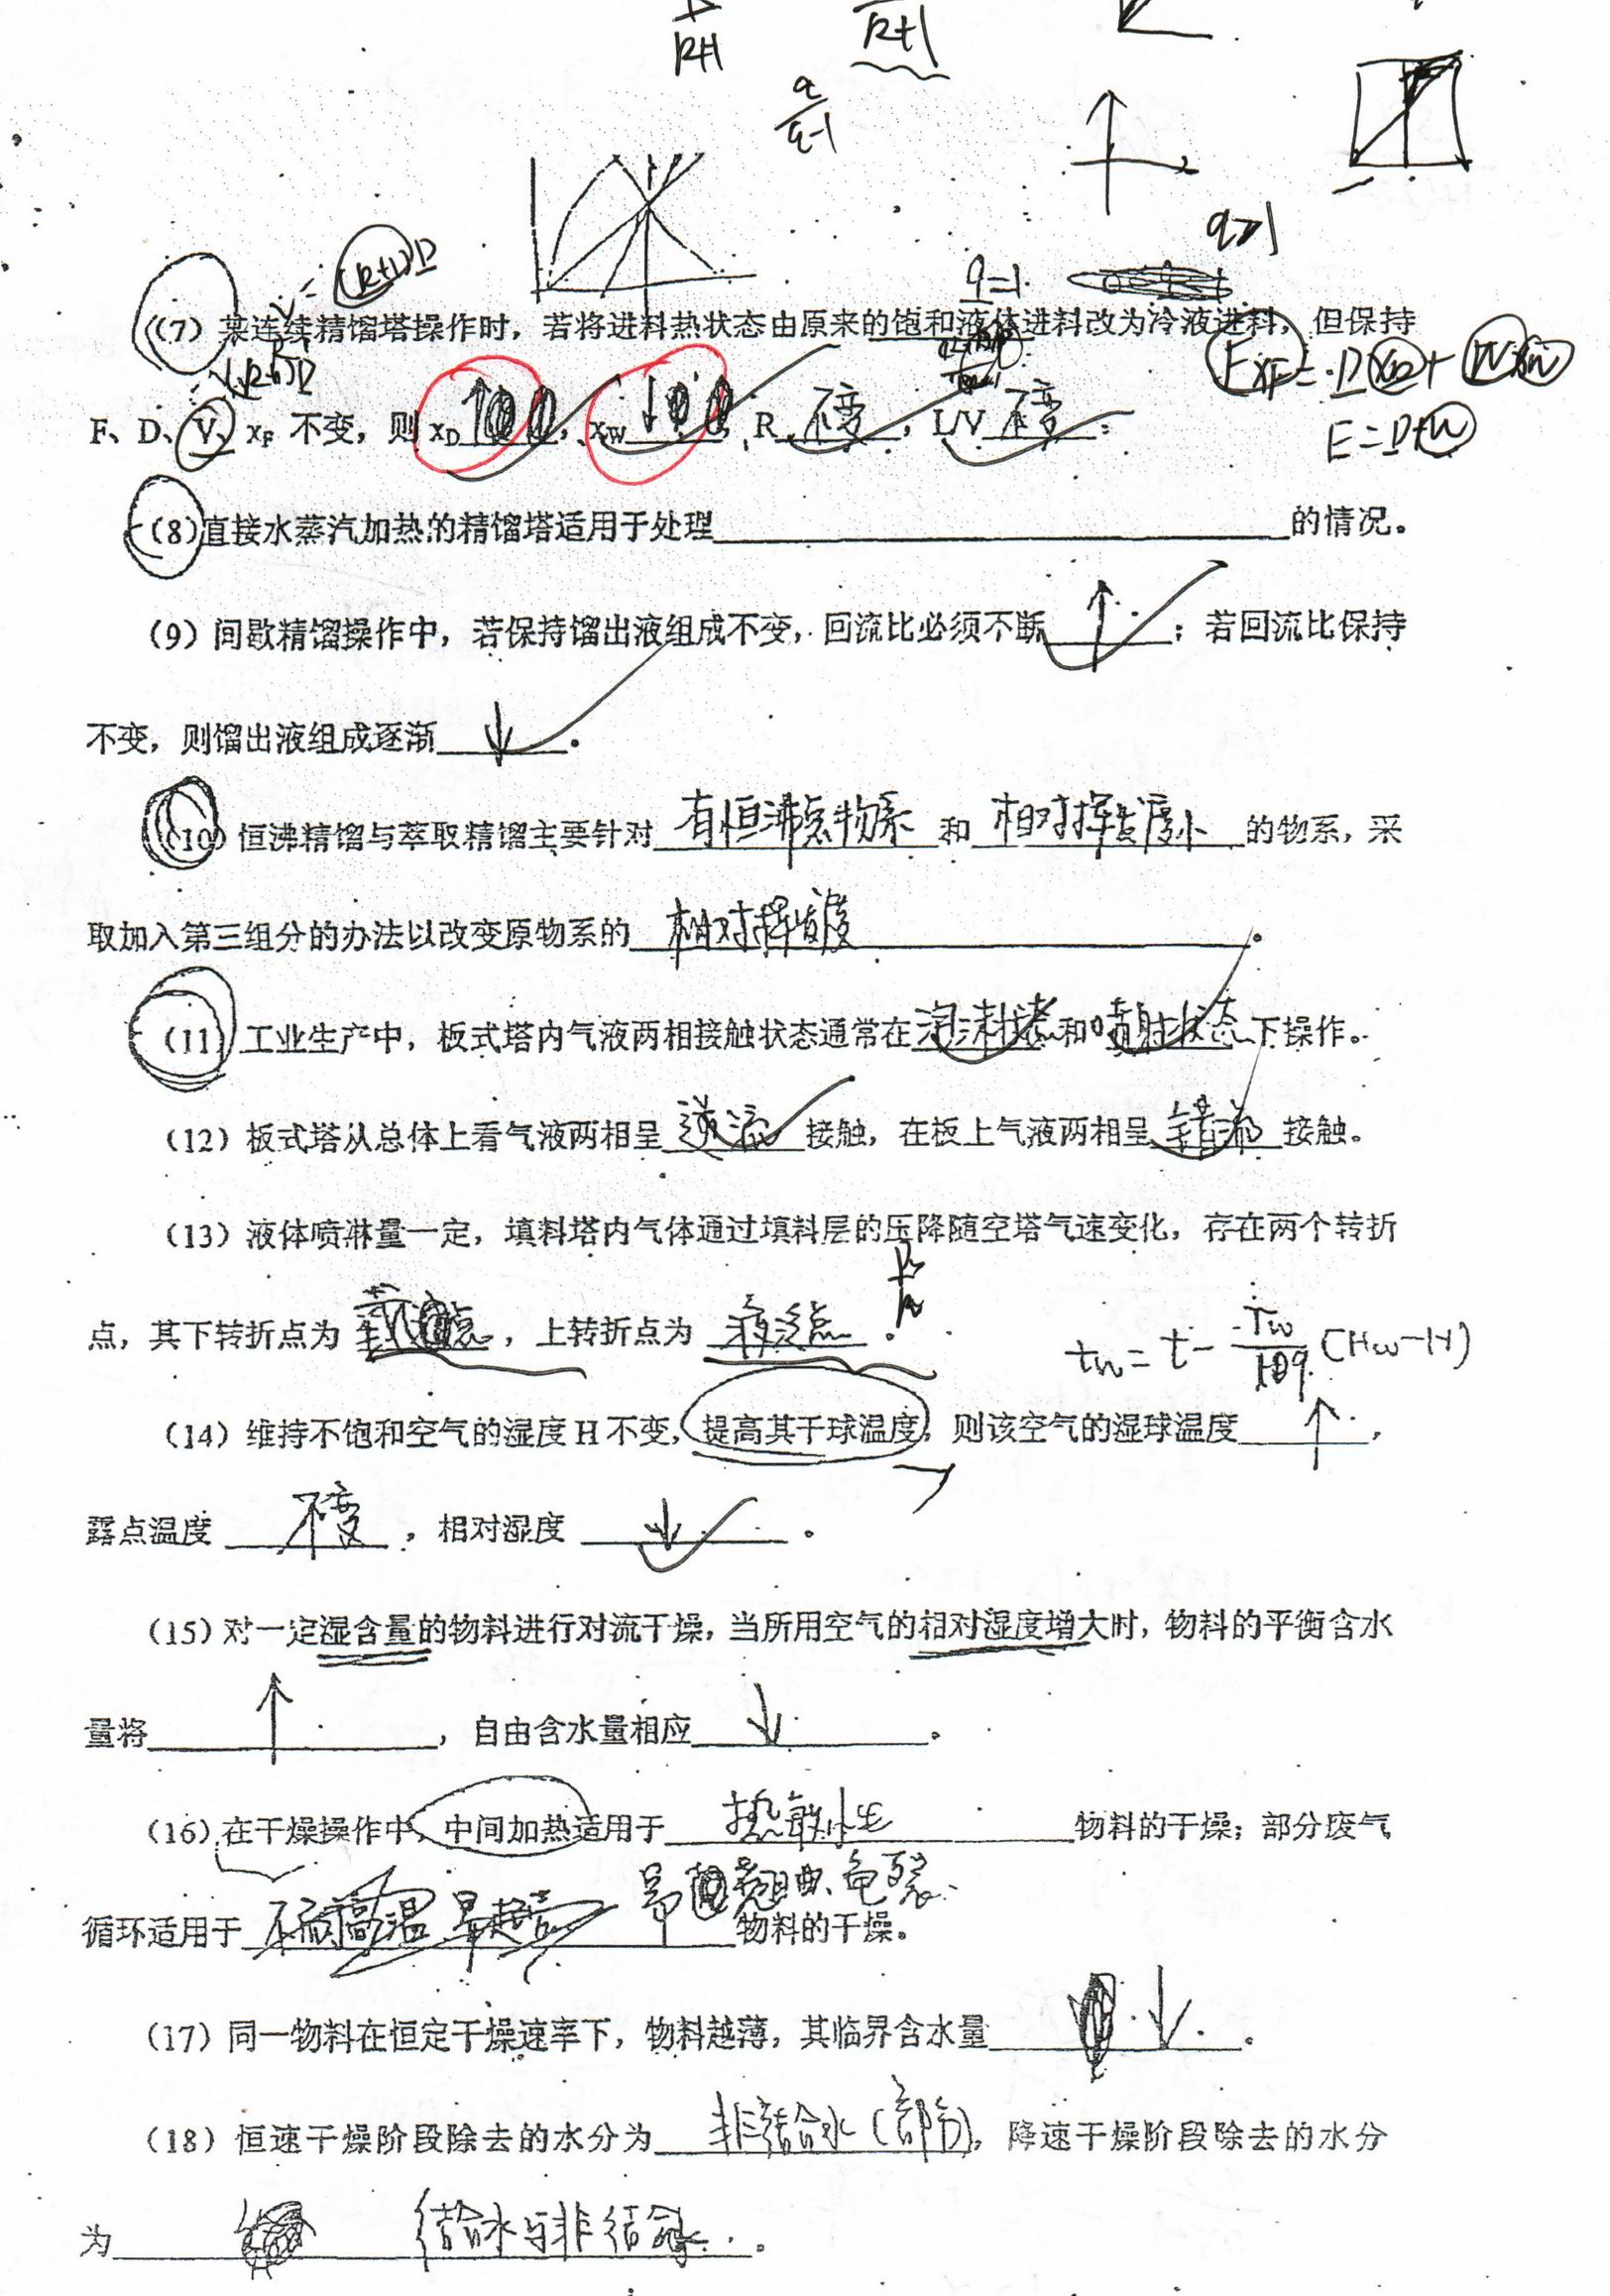 R+1 R+1
q/q-1
q>1
V=(R+1)D q=1
(7) 某连续精馏塔操作时，若将进料热状态由原来的饱和液体进料改为冷液进料，但保持
FxF=DxD+WxW
F、D、V、xF 不变，则 xD ↑ ，xW ↓ ，R 不变 ，L/V 不变 ；
F=D+W
(8)直接水蒸汽加热的精馏塔适用于处理 的情况。
(9) 间歇精馏操作中，若保持馏出液组成不变，回流比必须不断 ↑ ；若回流比保持
不变，则馏出液组成逐渐 ↓ 。
(10) 恒沸精馏与萃取精馏主要针对 有恒沸点物系 和 相对挥发度小 的物系，采
取加入第三组分的办法以改变原物系的 相对挥发度 。
(11) 工业生产中，板式塔内气液两相接触状态通常在 泡沫状态 和 喷射状态 下操作。
(12) 板式塔从总体上看气液两相呈 逆流 接触，在板上气液两相呈 错流 接触。
(13) 液体喷淋量一定，填料塔内气体通过填料层的压降随空塔气速变化，存在两个转折
点，其下转折点为 载点 ，上转折点为 液泛点 。
tw=t-rw/1.09(Hw-H)
(14) 维持不饱和空气的湿度 H 不变，提高其干球温度，则该空气的湿球温度 ↑ ，
露点温度 不变 ，相对湿度 ↓ 。
(15) 对一定湿含量的物料进行对流干燥，当所用空气的相对湿度增大时，物料的平衡含水
量将 ↑ ，自由含水量相应 ↓ 。
(16) 在干燥操作中，中间加热适用于 热敏性 物料的干燥；部分废气
易翘曲、龟裂
循环适用于 不耐高温 物料的干燥。
(17) 同一物料在恒定干燥速率下，物料越薄，其临界含水量 ↓ 。
(18) 恒速干燥阶段除去的水分为 非结合水(部分)，降速干燥阶段除去的水分
为 结合水与非结合水 。